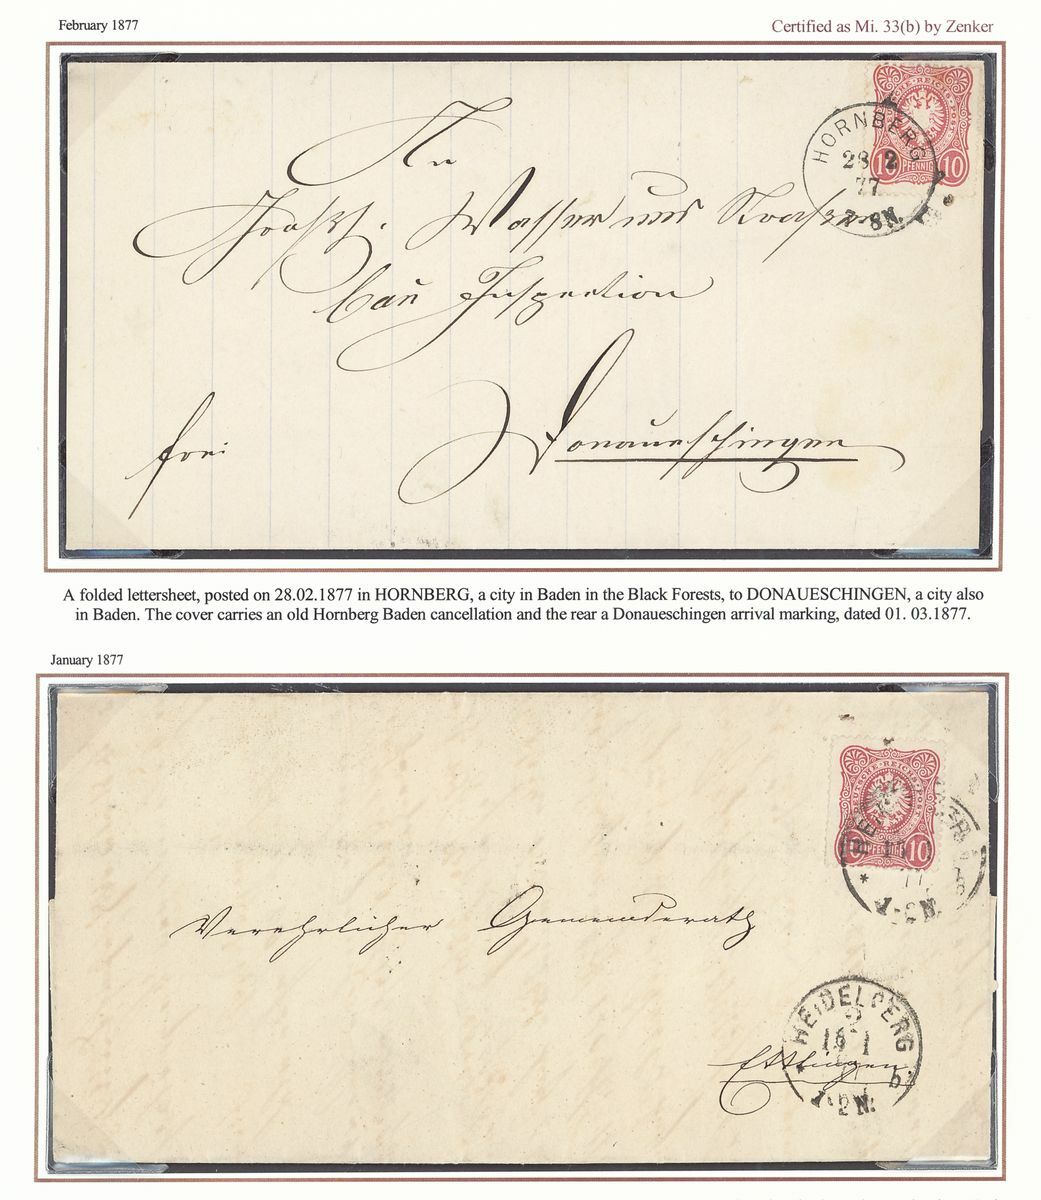 February 1877
Certified as Mi. 33(b) by Zenker
DEUTSCHE · REICHS · POST
10 PFENNIG 10
HORNBERG
28 2
77
7-8N.
An
Wasser und Strassen
bau Inspection
frei
Donaueschingen
A folded lettersheet, posted on 28.02.1877 in HORNBERG, a city in Baden in the Black Forests, to DONAUESCHINGEN, a city also
in Baden. The cover carries an old Hornberg Baden cancellation and the rear a Donaueschingen arrival marking, dated 01. 03.1877.
January 1877
DEUTSCHE · REICHS · POST
PFENNIG 10
Verehrlicher Gemeinderath
HEIDELBERG
16 1
Ettlingen
1-2N.